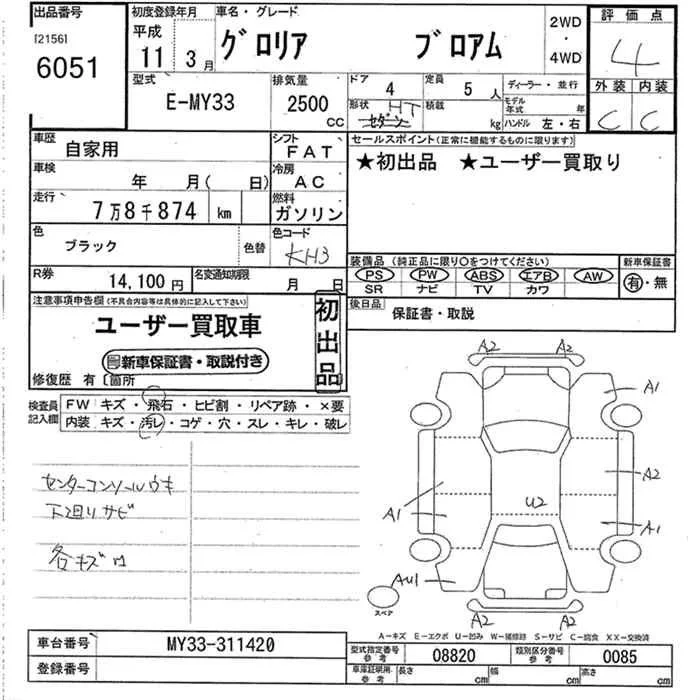 出品番号
[2156]
6051
初度登録年月
平成
11 3月
車名・グレード
グロリア ブロアム
2WD
・
4WD
評価点
4
外装 内装
C C
型式
E-MY33
排気量
2500
CC
ドア
4
定員
5 人
ディーラー・並行
形状 HT
セダーン
積載
kg
モデル年式 年
ハンドル 左・右
車歴
自家用
シフト
FAT
車検
年 月( 日)
冷房
AC
走行
7万8千874 km
燃料
ガソリン
色
ブラック
色替
色コード
KH3
R券
14,100円
名変通知期限
月 日
セールスポイント(正常に機能するものに限ります)
★初出品 ★ユーザー買取り
装備品(純正品に限り○をつけてください)
PS PW ABS エアB AW
SR ナビ TV カワ
新車保証書
有・無
後日品
保証書・取説
注意事項申告欄(不具合内容等は具体的に記入して下さい)
ユーザー買取車
新車保証書・取説付き
初出品
修復歴 有〔箇所
検査員記入欄
FW キズ・飛石・ヒビ割・リペア跡・×要
内装 キズ・汚レ・コゲ・穴・スレ・キレ・破レ
センターコンソールウキ
下廻りサビ
各キズ凹
A2 A2
A1
A2
U2
A1
A1
AU1
スペア
A2 A2
A-キズ E-エクボ U-凹み W-補修跡 S-サビ C-腐食 XX-交換済
車台番号
MY33-311420
登録番号
型式指定番号
参考
08820
類別区分番号
参考
0085
車庫証明用
参考
長さ cm 幅 cm 高さ cm